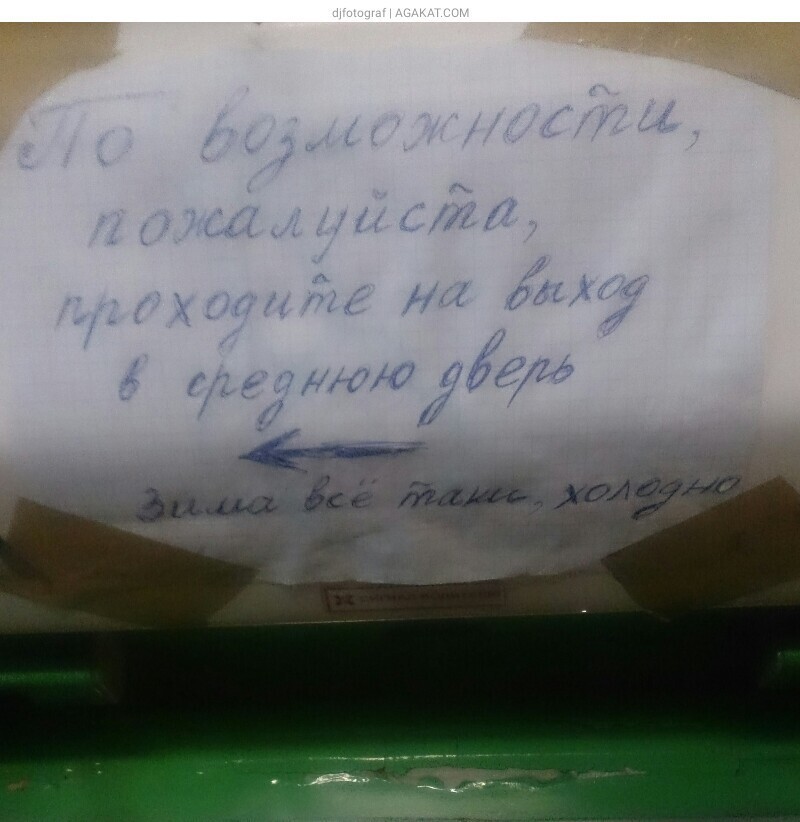 djfotograf | AGAKAT.COM
По возможности,
пожалуйста,
проходите на выход
в среднюю дверь
Зима всё таки, холодно